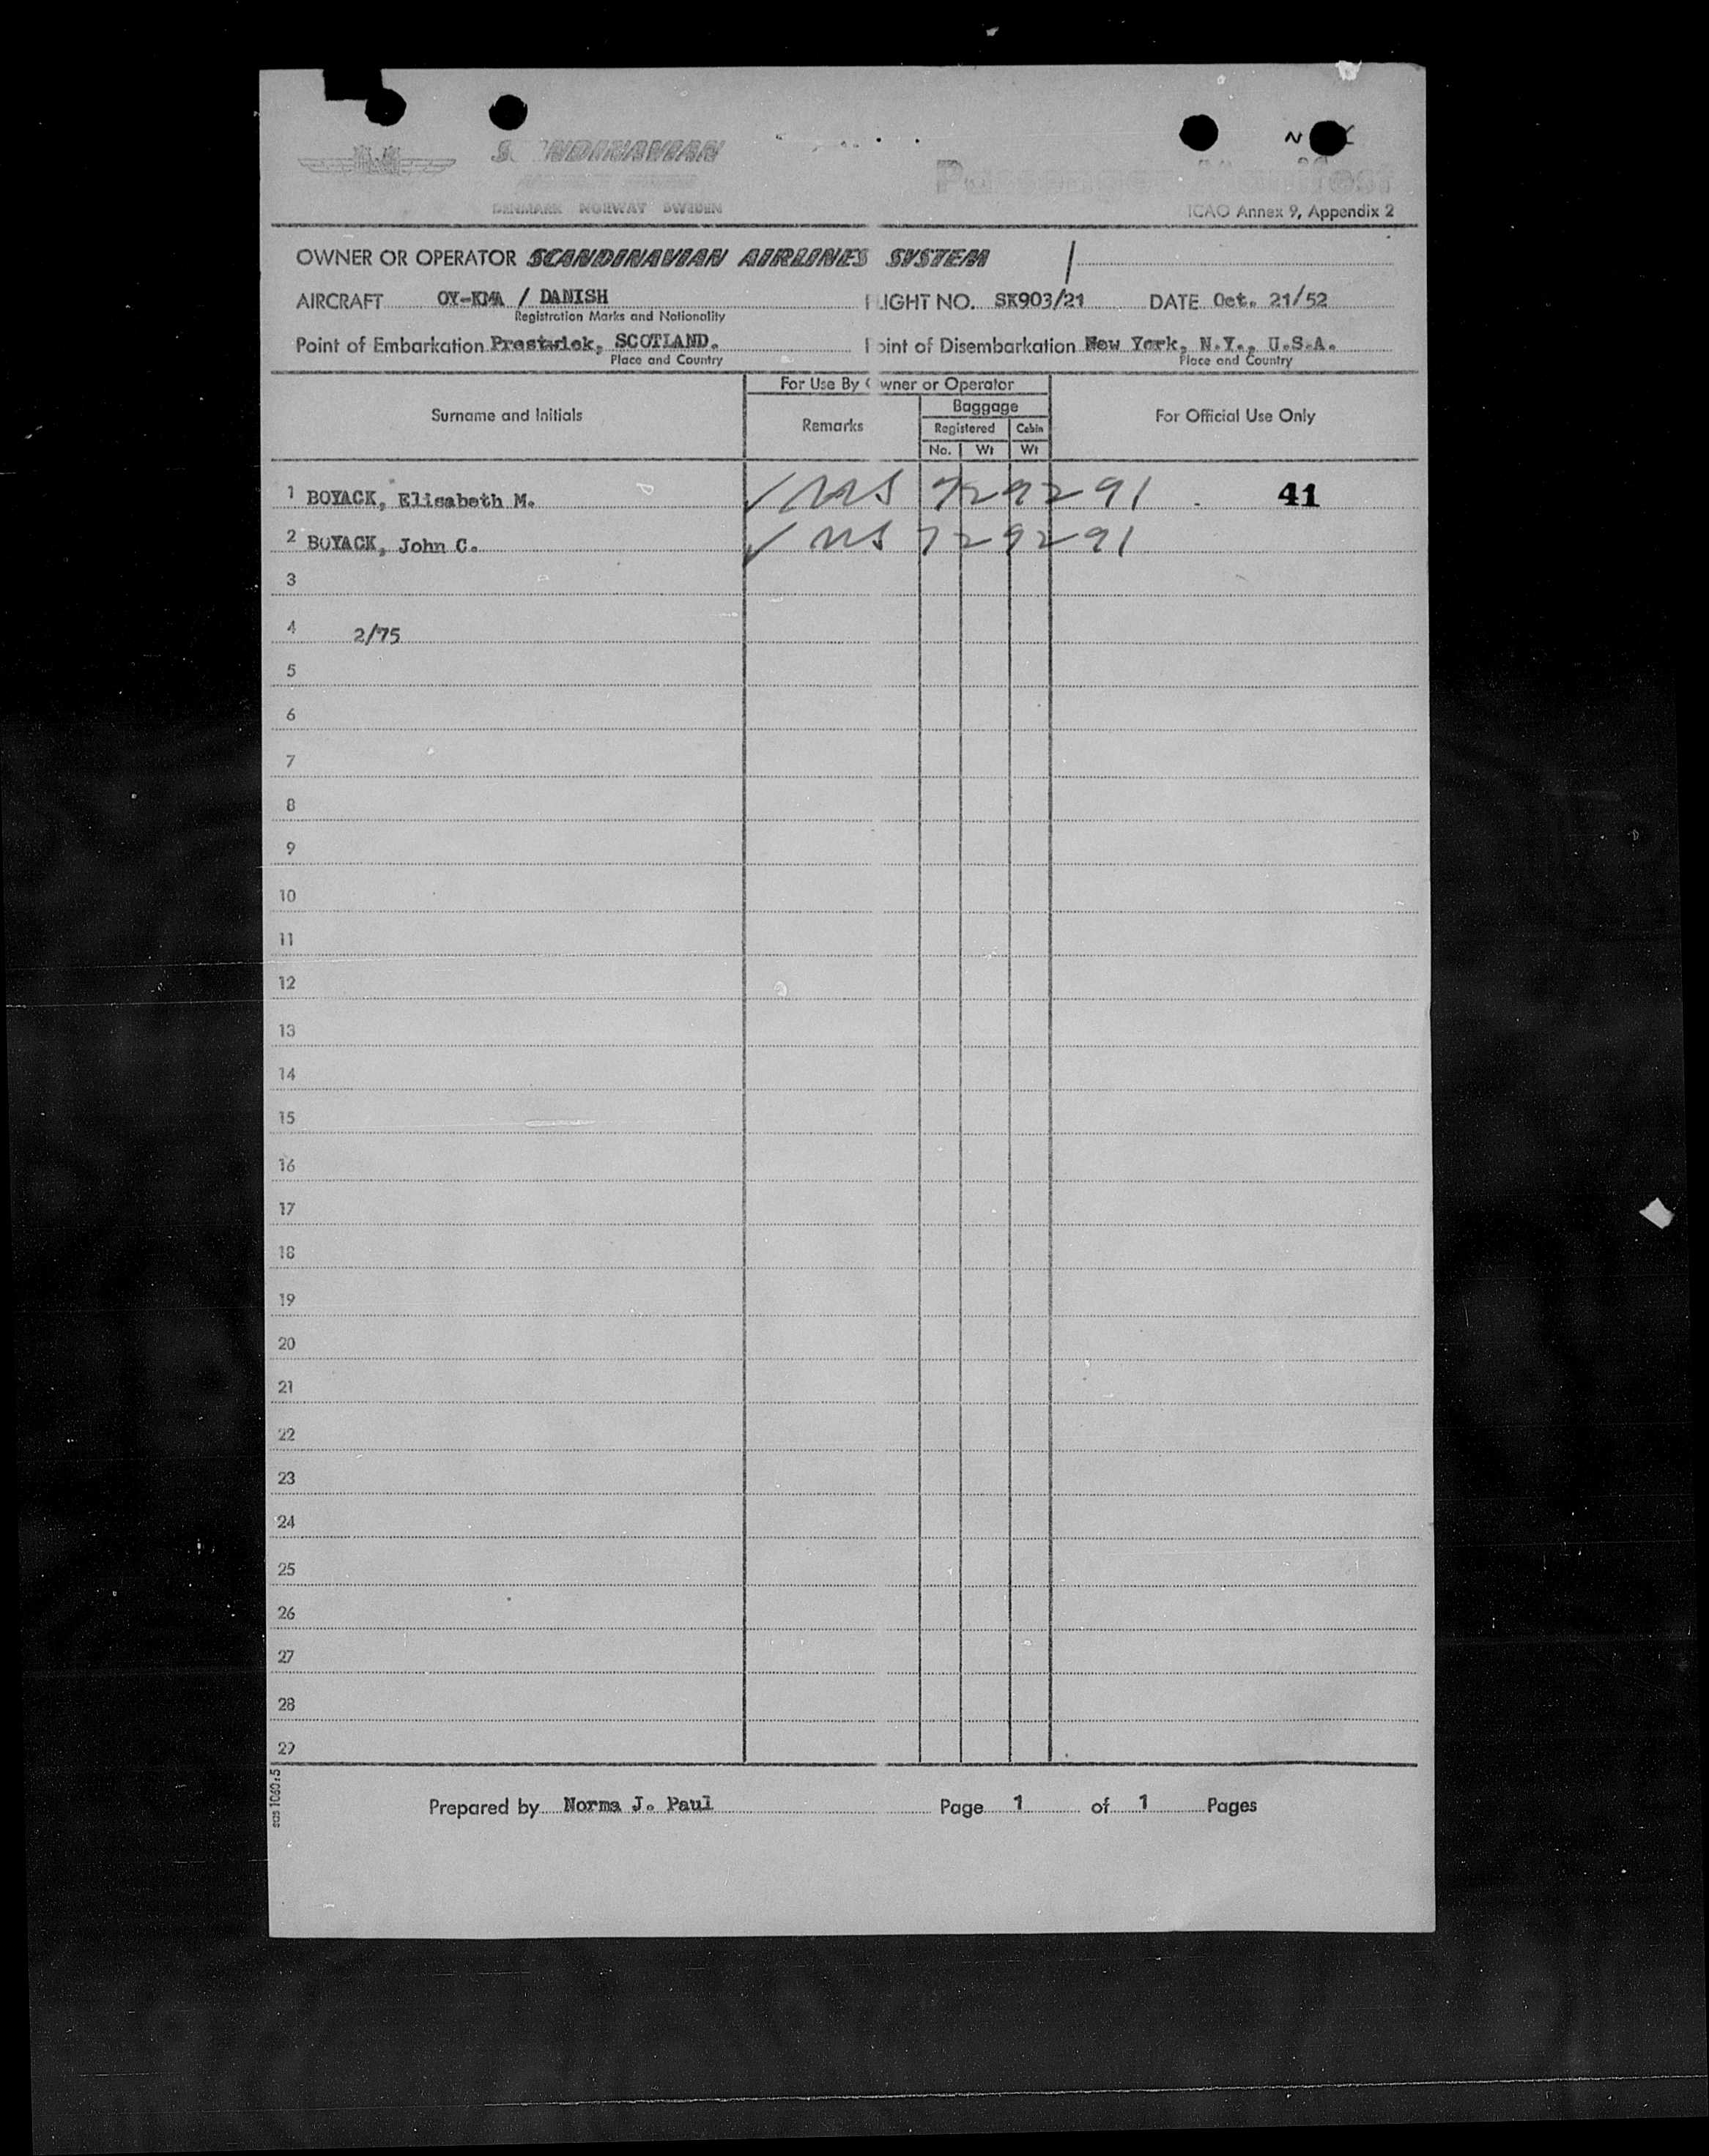 SCANDINAVIAN
DENMARK NORWAY SWEDEN
Passenger Manifest
ICAO Annex 9, Appendix 2
OWNER OR OPERATOR SCANDINAVIAN AIRLINES SYSTEM
AIRCRAFT OY-KMA / DANISH FLIGHT NO. SK903/21 DATE Oct. 21/52
Registration Marks and Nationality
Point of Embarkation Prestwick, SCOTLAND. Point of Disembarkation New York, N.Y., U.S.A.
Place and Country Place and Country
For Use By Owner or Operator
Surname and Initials Remarks Baggage For Official Use Only
Registered Cabin
No. Wt Wt
1 BOYACK, Elisabeth M. ✓ 729291 41
2 BOYACK, John C. ✓ 729291
3
4 2/75
5
6
7
8
9
10
11
12
13
14
15
16
17
18
19
20
21
22
23
24
25
26
27
28
29
sas 1060:5
Prepared by Norma J. Paul Page 1 of 1 Pages